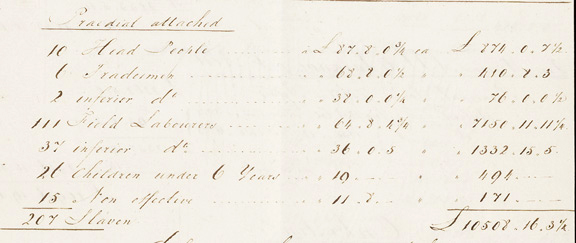 Praedial attached
10 Head People £87.8.0¾ ea £874.0.7½
6 Tradesmen 68.8.0½ " 410.8.3
2 inferior do 38.0.0¼ " 76.0.0½
111 Field Labourers 64.8.4¾ " 7150.11.11¼
37 inferior do 36.0.5 " 1332.15.5
26 Children under 6 Years 19 " 494
15 Non effective 11.8 " 171
207 Slaves £10508.16.3¼